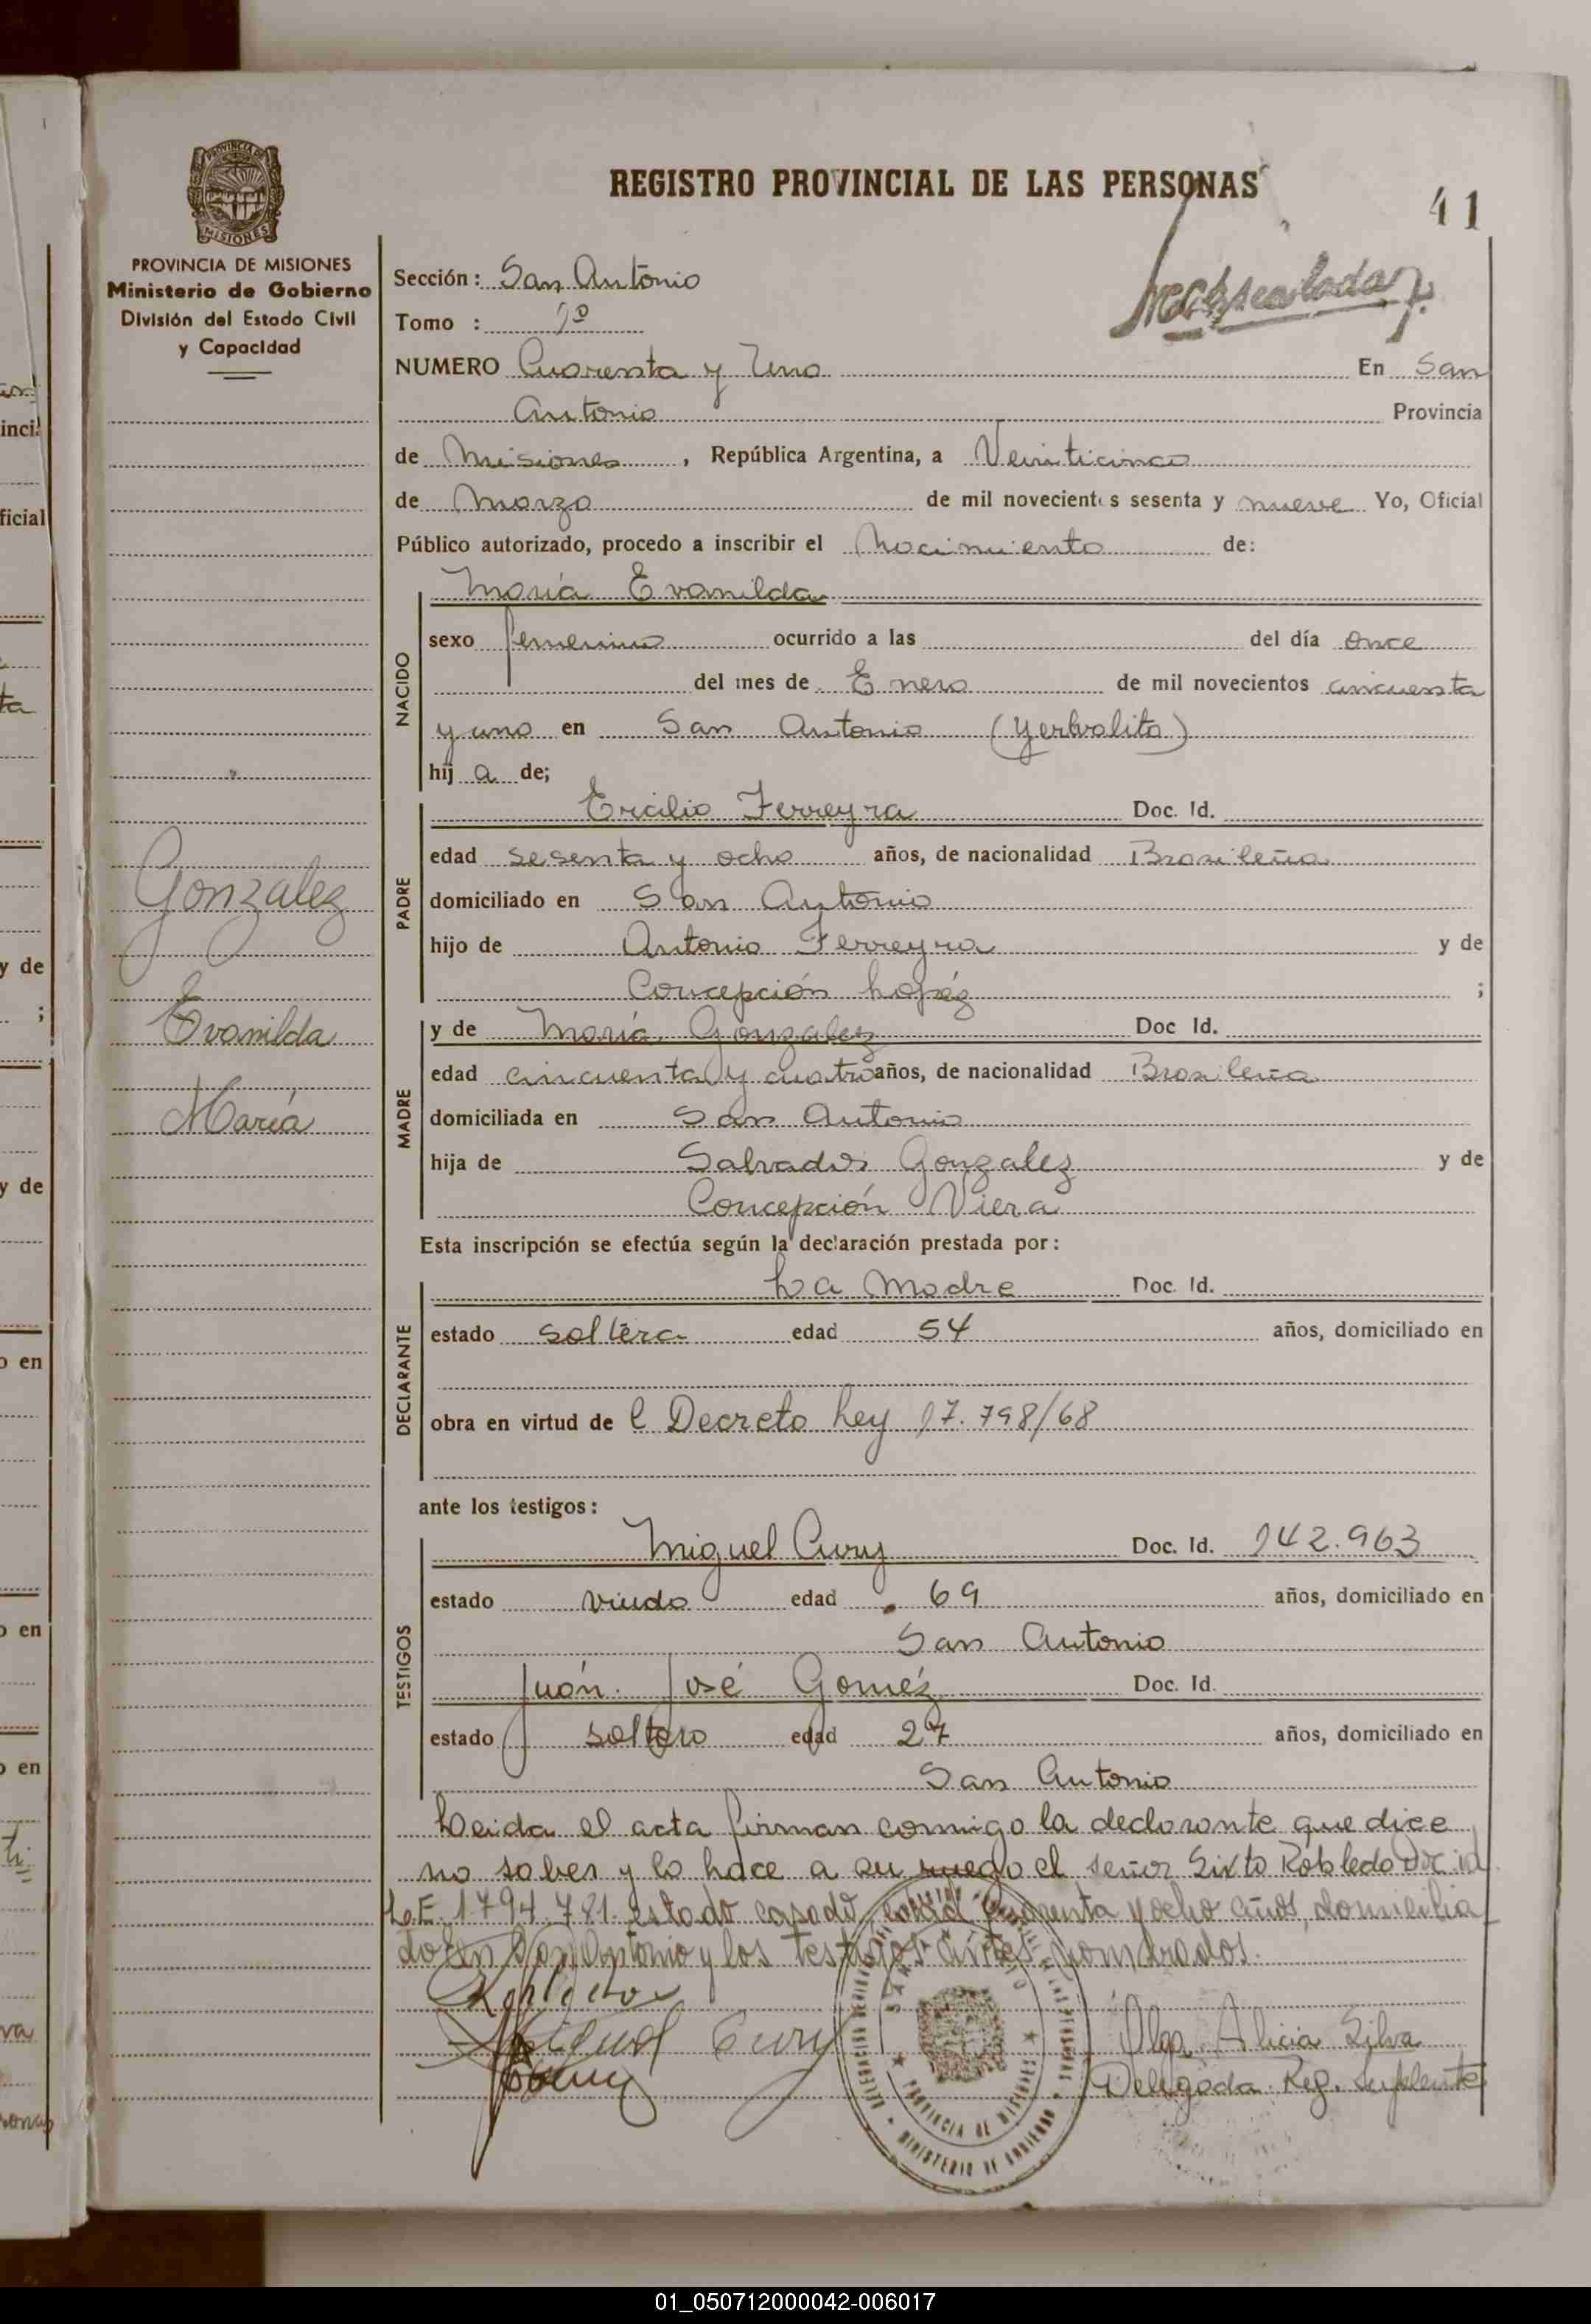 REGISTRO PROVINCIAL DE LAS PERSONAS
41
PROVINCIA DE MISIONES
Ministerio de Gobierno
División del Estado Civil
y Capacidad
Sección: San Antonio
Tomo : 1º
NUMERO Cuarenta y Uno En San
Antonio Provincia
de Misiones, República Argentina, a Veinticinco
de Marzo de mil novecientos sesenta y nueve Yo, Oficial
Público autorizado, procedo a inscribir el Nacimiento de:
NACIDO
María Evanilda
sexo femenino ocurrido a las del día once
del mes de Enero de mil novecientos cincuenta
y uno en San Antonio (Yerbalito)
hij a de;
PADRE
Ercilio Ferreyra Doc. Id.
edad sesenta y ocho años, de nacionalidad Brasileña
domiciliado en San Antonio
hijo de Antonio Ferreyra y de
Concepción Lopéz ;
MADRE
y de María Gonzalez Doc Id.
edad cincuenta y cuatro años, de nacionalidad Brasileña
domiciliada en San Antonio
hija de Salvador Gonzalez y de
Concepción Viera
Gonzalez
Evanilda
María
Esta inscripción se efectúa según la declaración prestada por:
DECLARANTE
La Madre Doc. Id.
estado soltera edad 54 años, domiciliado en
obra en virtud de l Decreto Ley 17.798/68
ante los testigos:
TESTIGOS
Miguel Cury Doc. Id. 142.963
estado viudo edad 69 años, domiciliado en
San Antonio
Juán José Goméz Doc. Id.
estado soltero edad 27 años, domiciliado en
San Antonio
Leida el acta firman conmigo la declarante que dice
no saber y lo hace a su ruego el señor Sixto Robledo Doc id
L.E. 1794.781 estado casado, edad cuarenta y ocho años, domicilia
do en San Antonio y los testigos antes nombrados.
Robledo
Miguel Cury
Olga Alicia Silva
Delegada Reg. Suplente
PROVINCIA DE MISIONES
MINISTERIO DE GOBIERNO
01_050712000042-006017